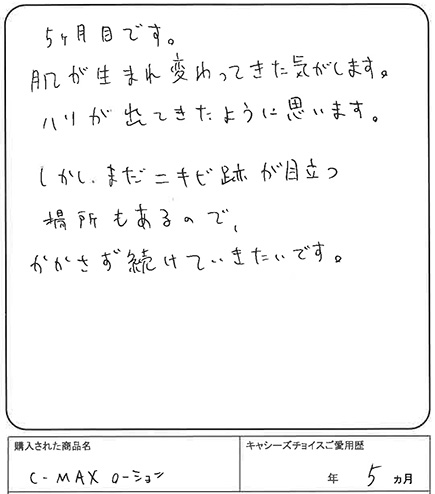 5ヶ月目です。
肌が生まれ変わってきた気がします。
ハリが出てきたように思います。
しかし、まだニキビ跡が目立つ
場所もあるので、
かかさず続けていきたいです。
購入された商品名
キャシーズチョイスご愛用歴
C-MAX ローション
年 5 ヵ月